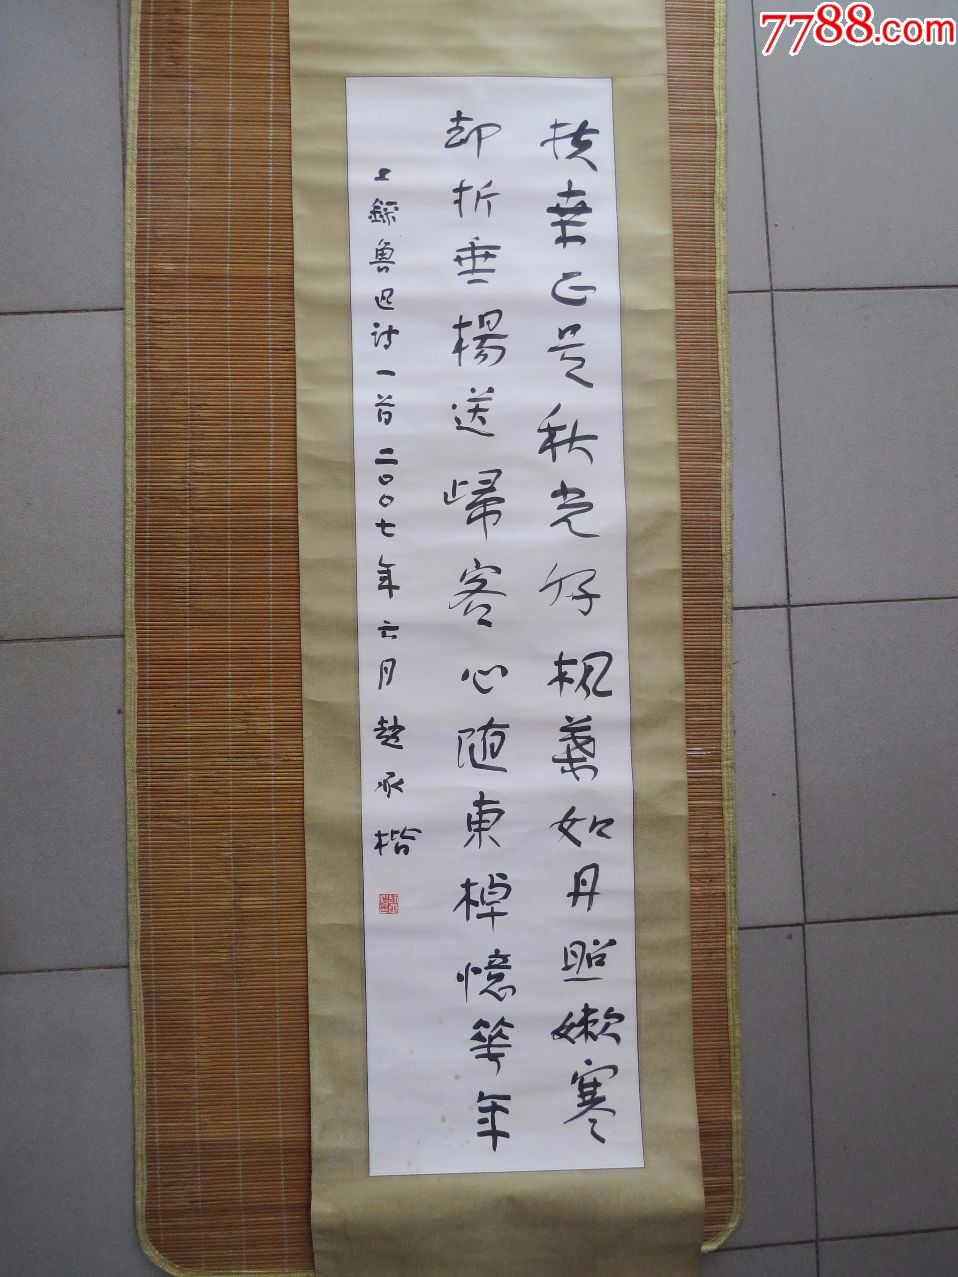 7788.com
扶桑正是秋光好枫葉如丹照嫩寒
却折垂楊送歸客心随東棹憶華年
上録魯迅诗一首二〇〇七年六月趙承楷